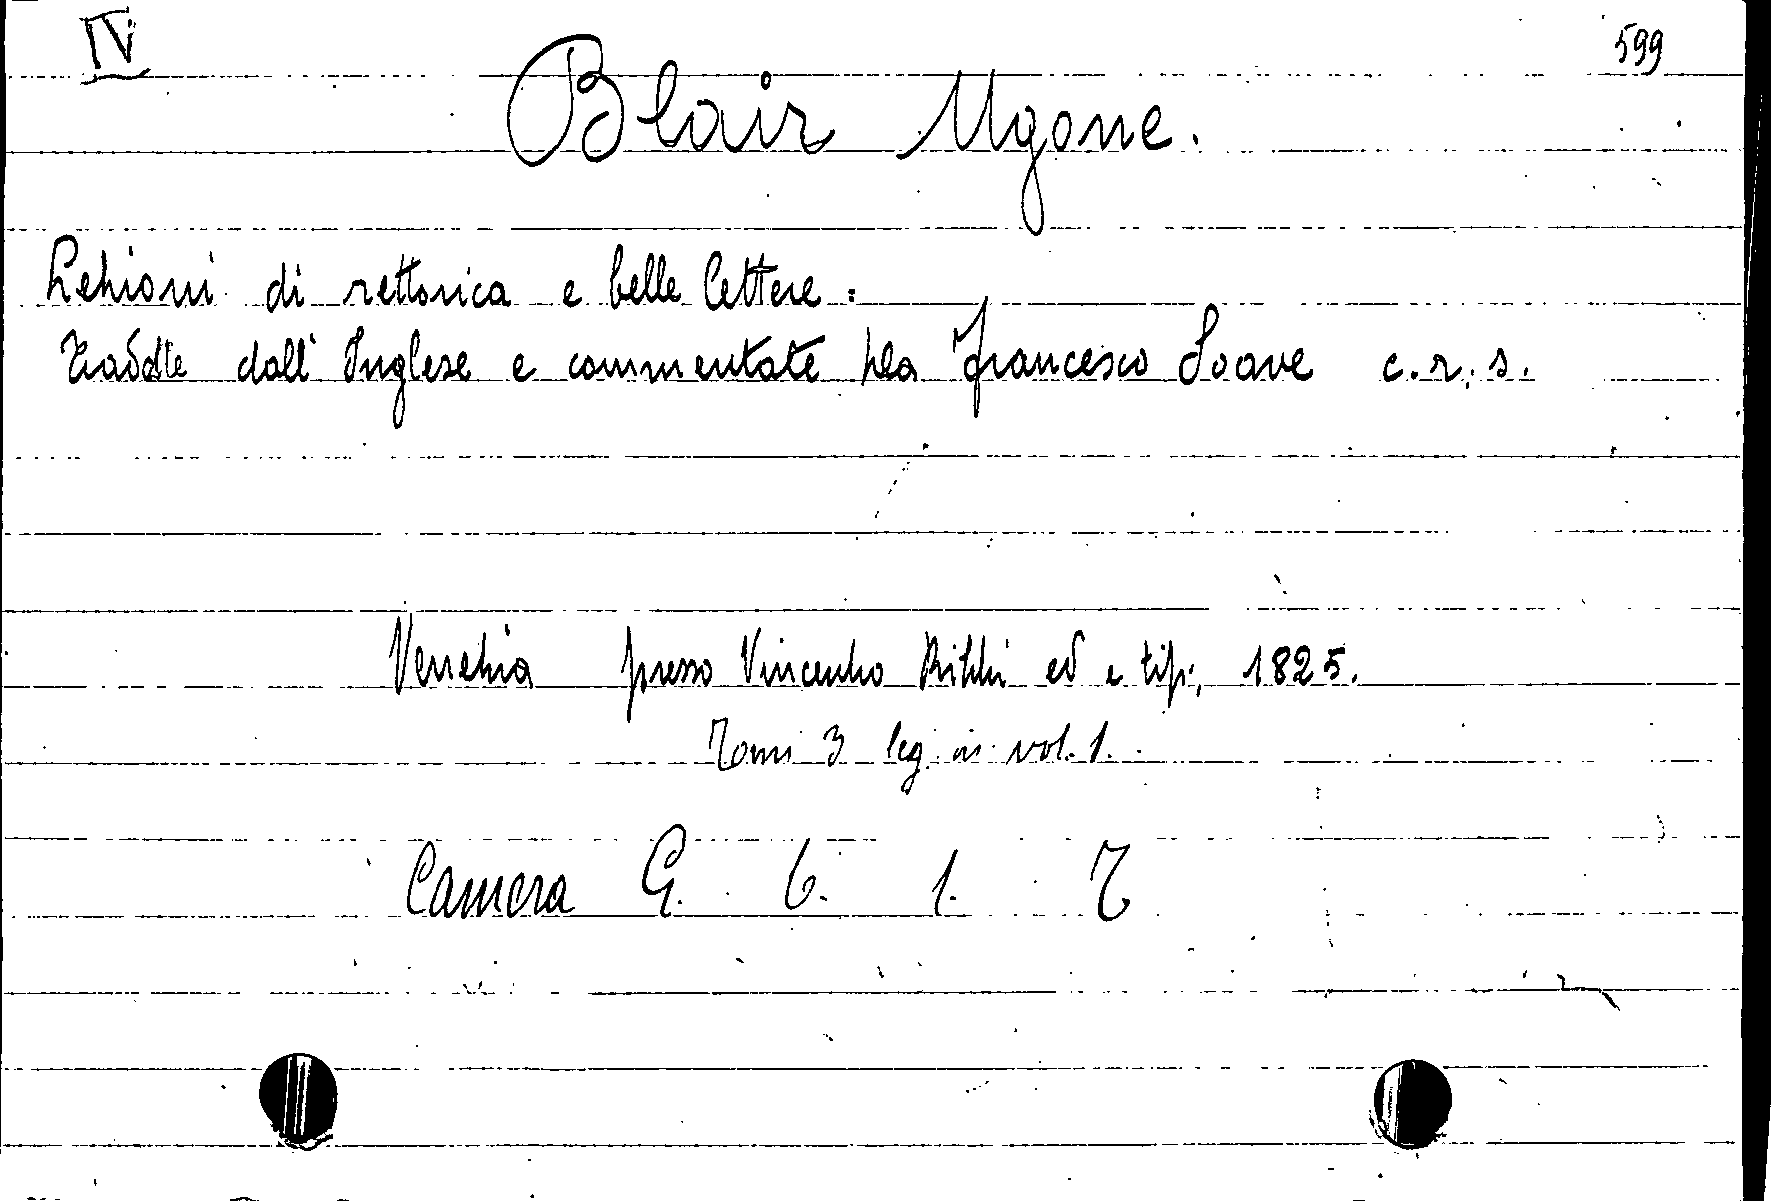 IV
599
Blair Ugone.
Lezioni di rettorica e belle lettere.
Tradotte dall'Inglese e commentate da Francesco Soave c.r.s.
Venezia presso Vincenzo Rizzi ed e tip., 1825.
Tomi 3 leg. in vol. 1.
Camera G. 6. 1. 7